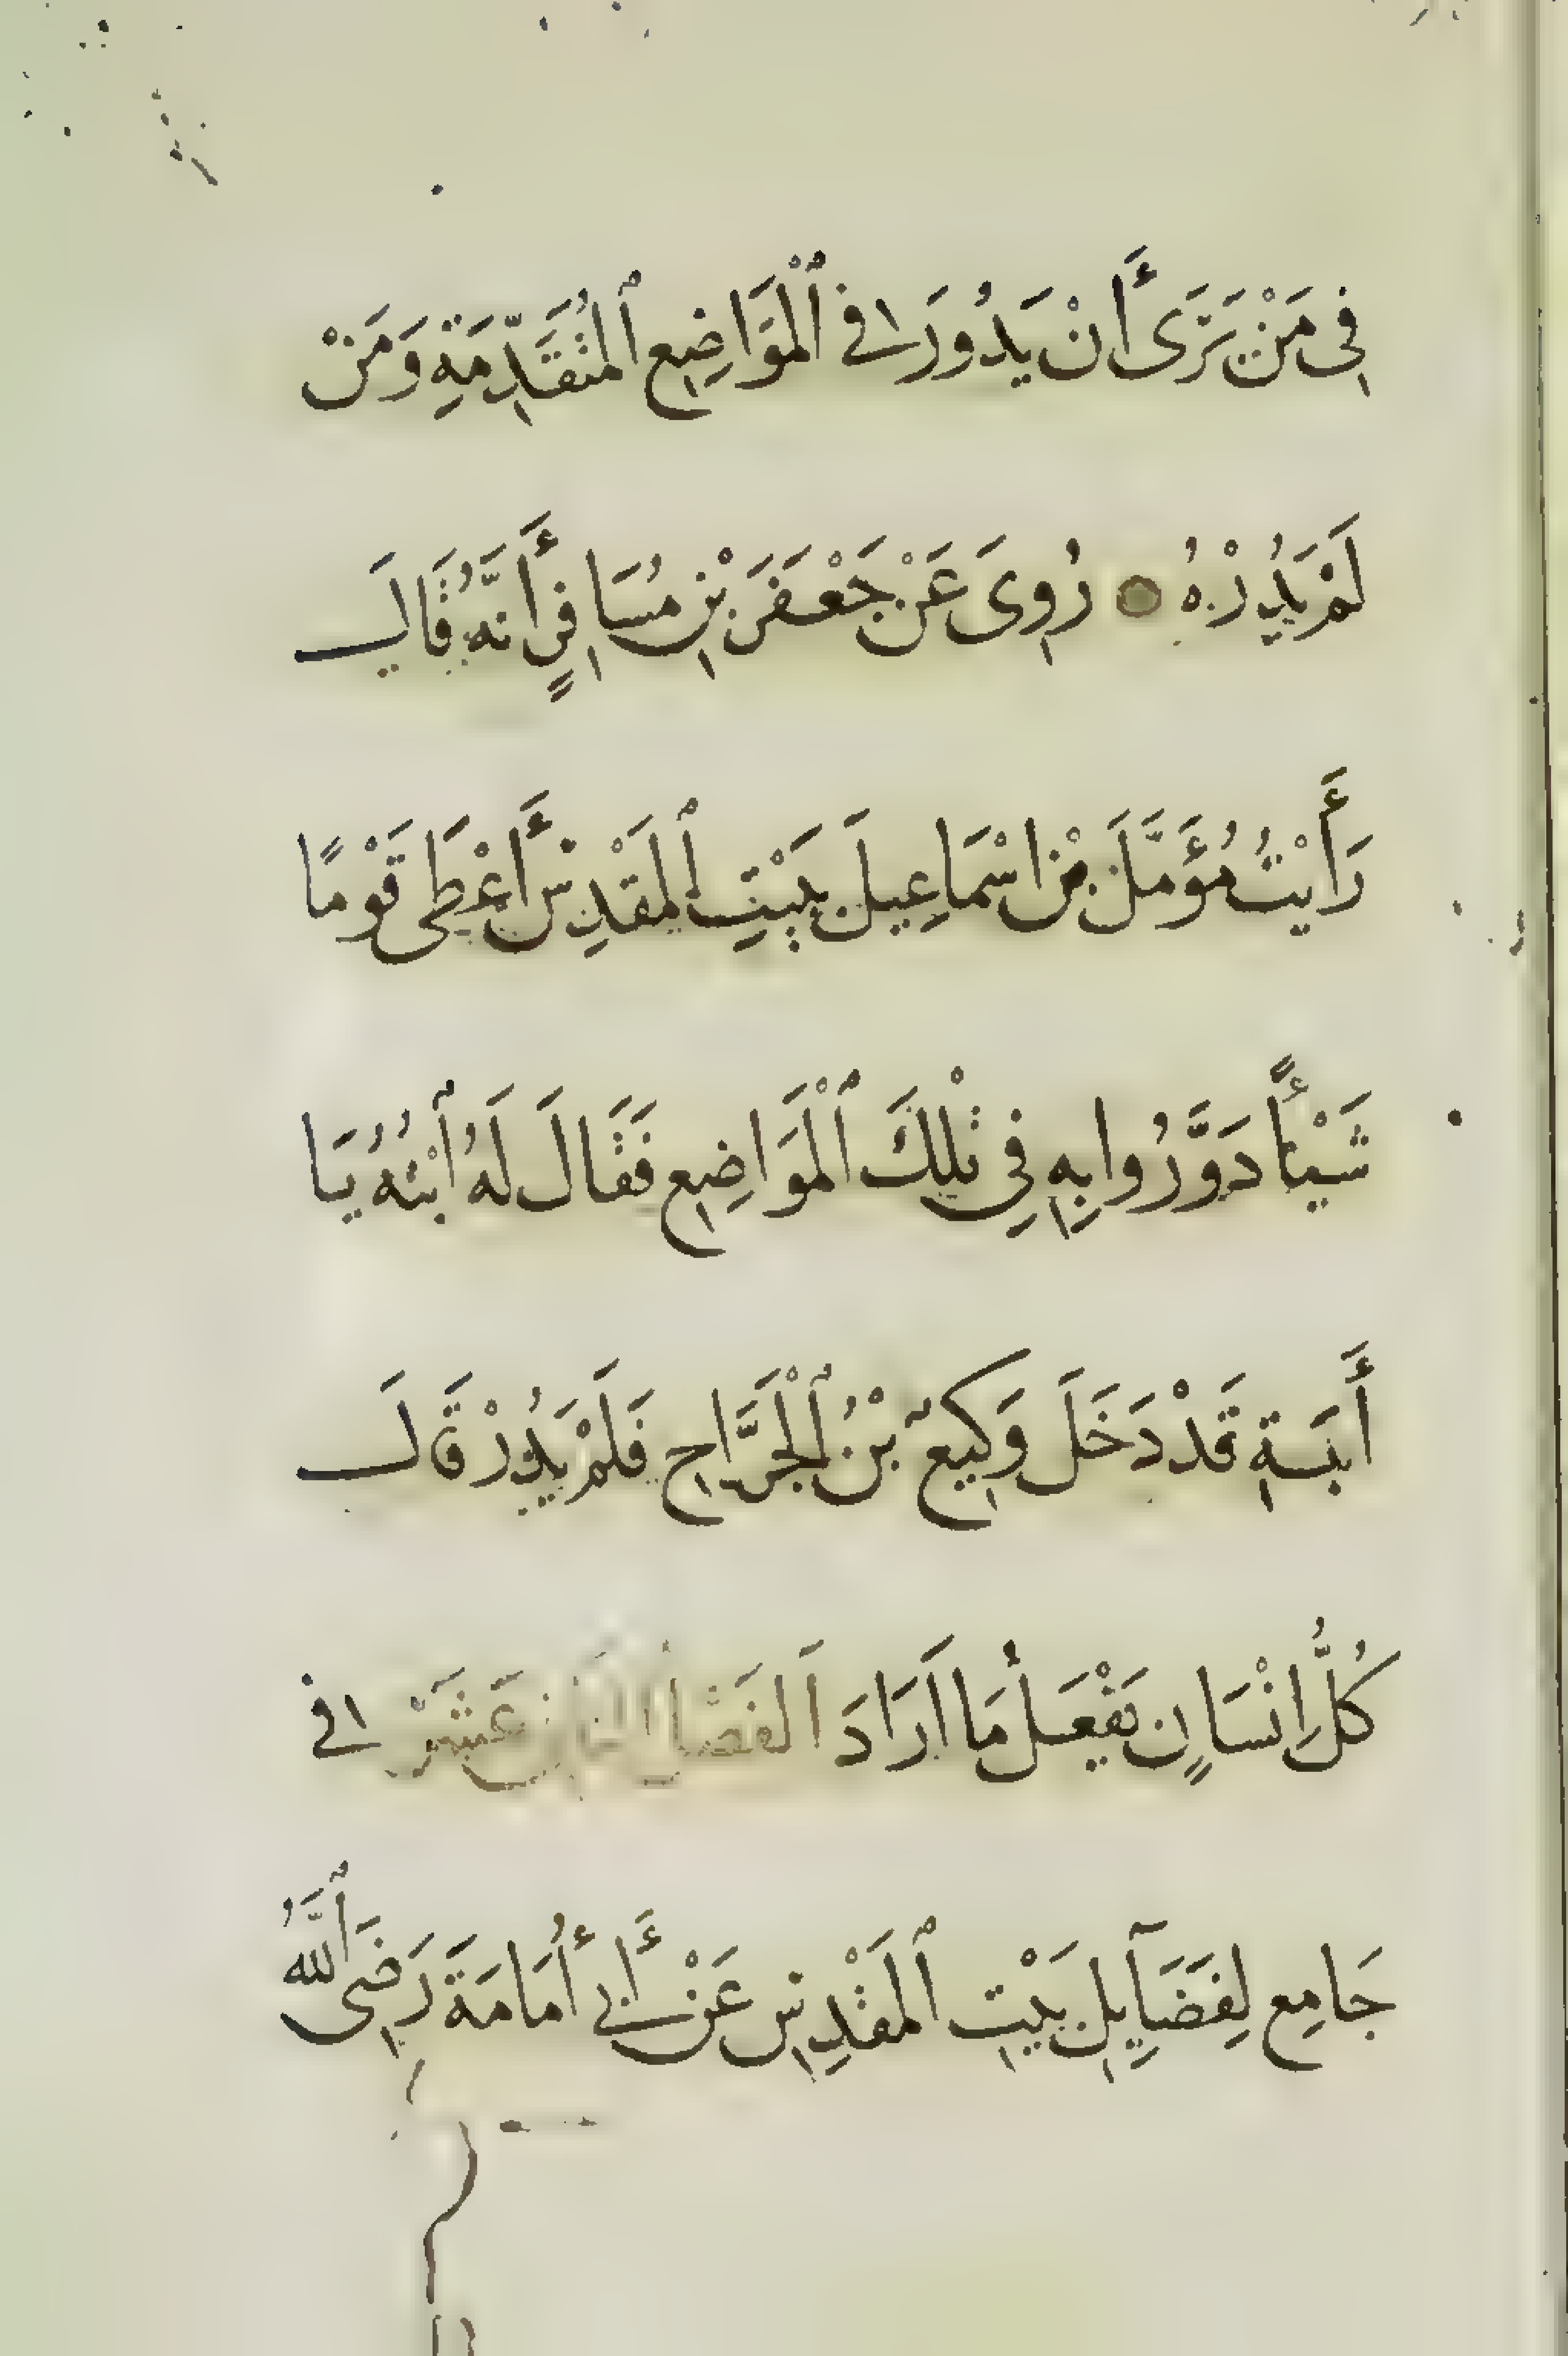 فِي مَنْ يَرَى أَنْ يَدُورَ فِي ٱلْمَوَاضِعِ ٱلْمُتَقَدِّمَةِ وَمَنْ
لَمْ يَدُرْهُ رُوِىَ عَنْ جَعْفَرَ بْنِ مُسَافِرٍ أَنَّهُ قَالَ
رَأَيْتُ مُؤَمَّلَ بْنَ اسْمَاعِيلَ بِبَيْتِ ٱلمَقْدِسِ أَعْطَى قَوْمًا
شَيْئًا دَوَّرُوا بِهِ فِي تْلِكَ ٱلْمَوَاضِعِ فَقَالَ لَهُ ٱبْنُهُ يَا
أَبَةِ قَدْ دَخَلَ وَكِيعُ بْنُ ٱلْجَرَّاحِ فَلَمْ يَدُرْ قَالَ
كُلُّ اِنْسَانٍ يَفْعَلُ مَا اَرَادَ اَلفَصْلُ عَشَرْ فِي
جَامِعِ لِفَضَآيِلِ بَيْتِ ٱلمَقْدِسِ عَنْ أَبِي أُمَامَةَ رَضِىَ ٱللَّهُ